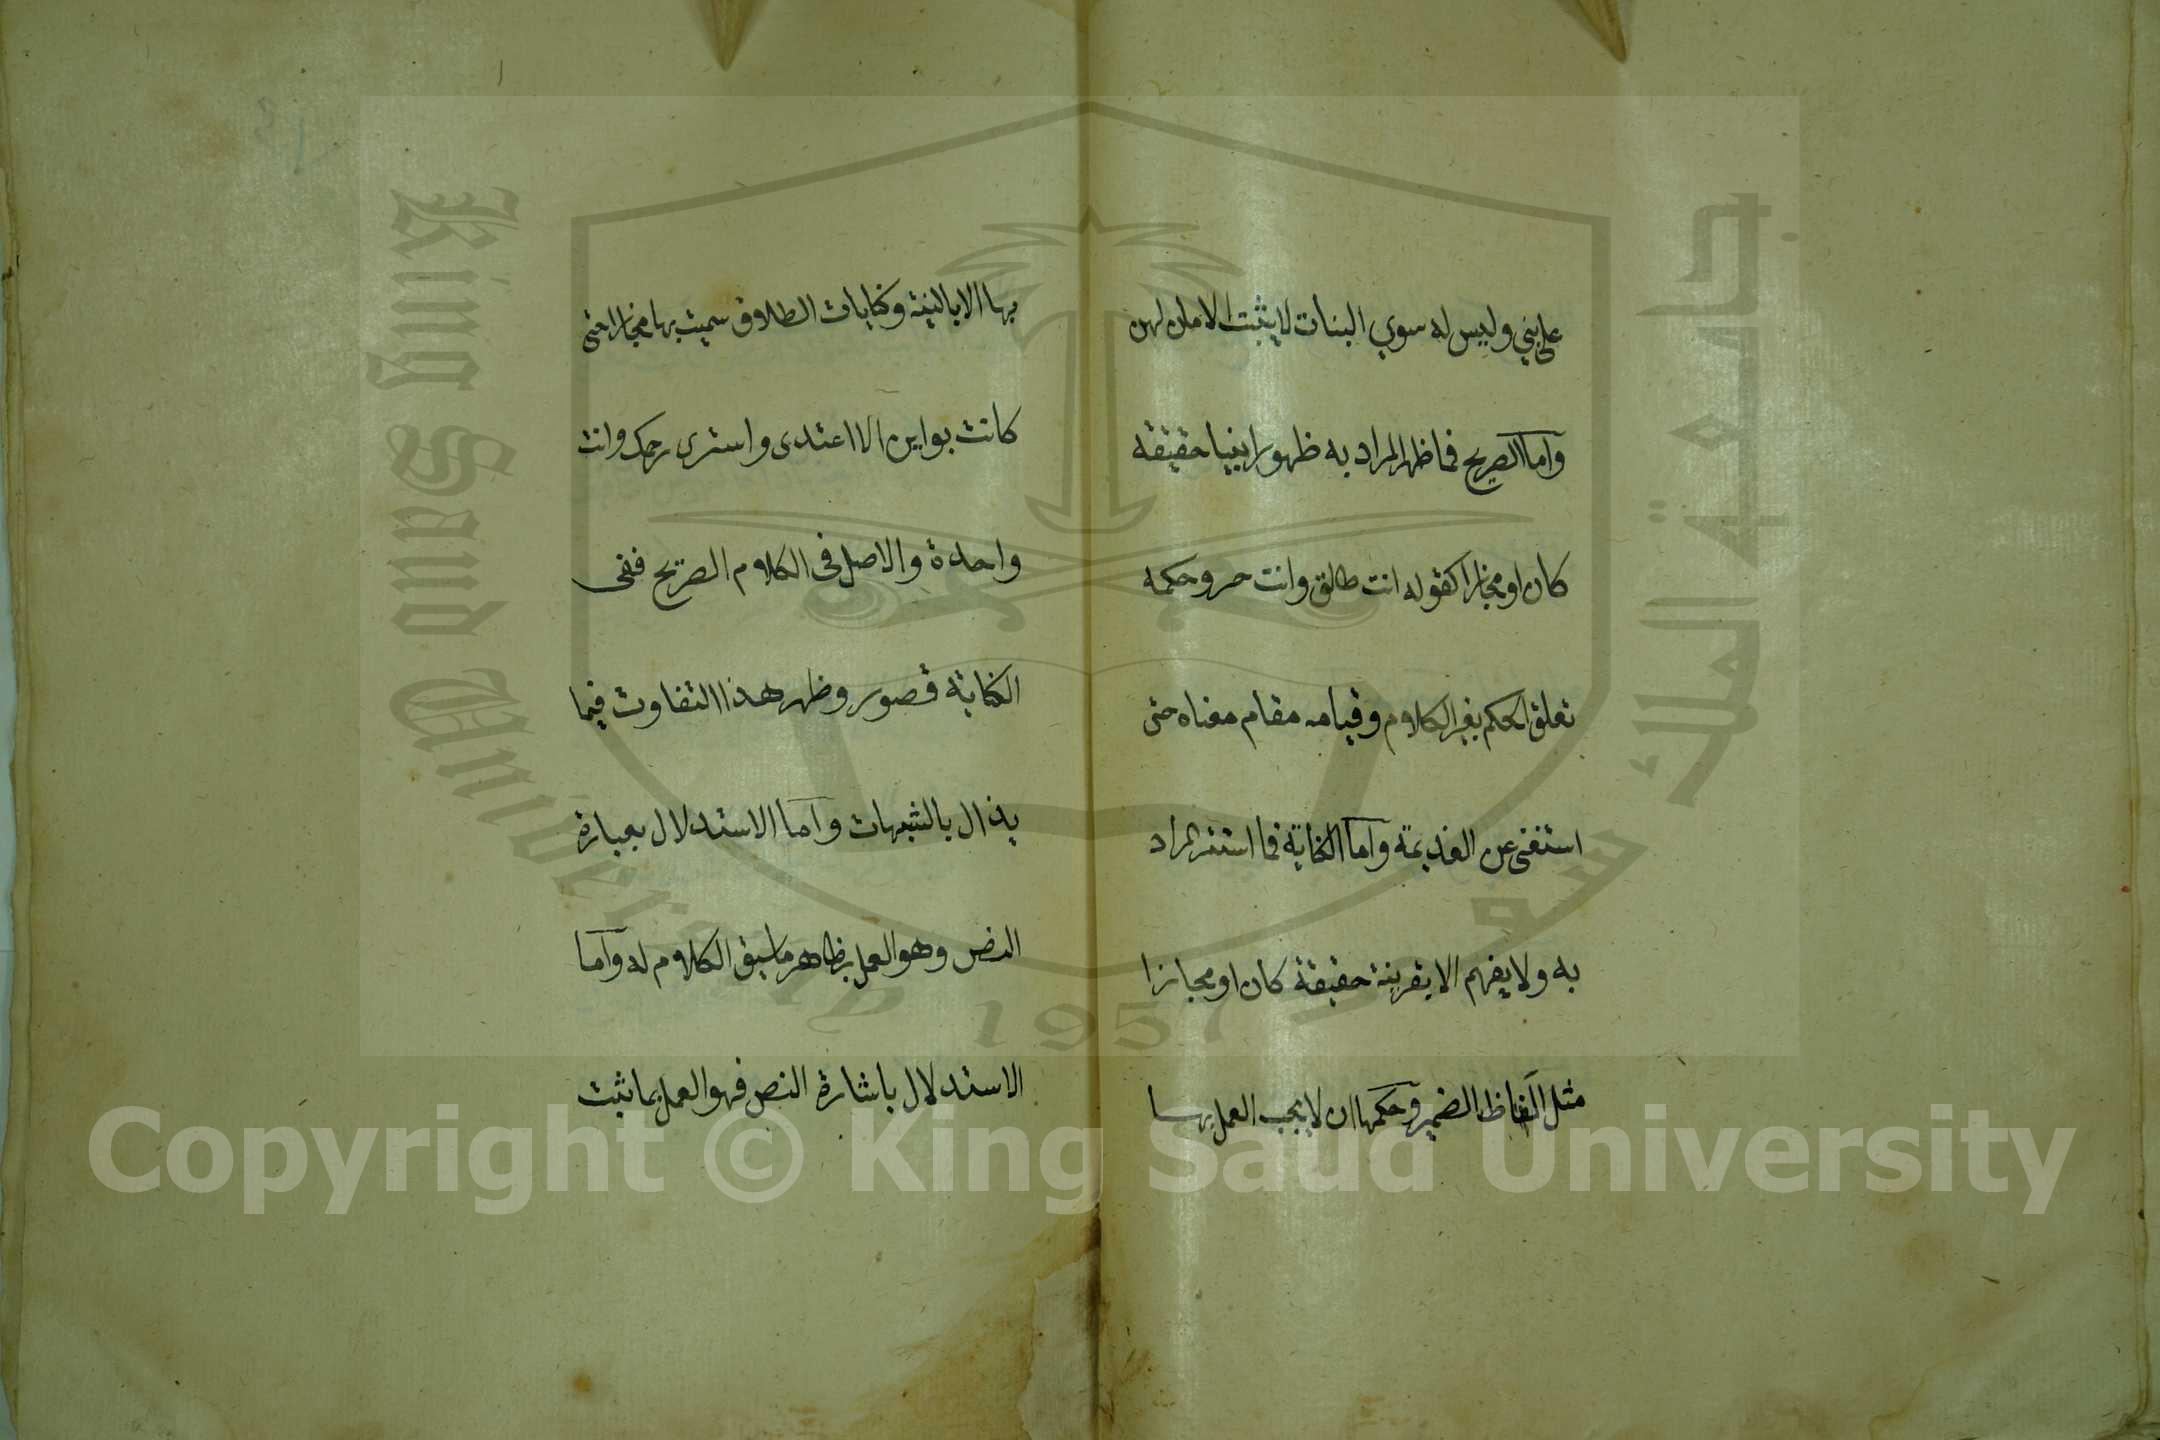 على بني وليس له سوي البنات لا يثبت الامان لهن
واما الصريح فما ظهر المراد به ظهورا بينا حقيقة
كان او مجازا كقوله انت طالق وانت حر وحكمه
تعلق الحكم بعين الكلام وقيامه مقام معناه حتى
استغنى عن العزيمة واما الكناية فما استتر المراد
به ولا يفهم الا بقرينة حقيقة كان او مجازا
مثل الفاظ الضمير وحكمها ان لا يجب العمل بها
بها الا بالنية وكنايات الطلاق سميت بها مجازا حتى
كانت بواين الا اعتدى واستبرى رحمك وانت
واحدة والاصل فى الكلام الصريح ففى
الكناية قصور وظهر هذا التفاوت فيما
بالشبهات واما الاستدلال بعبارة
النص وهو العمل بظاهر ما سيق الكلام له واما
الاستدلال باشارة النص فهو العمل بما ثبت
King Saud University
جامعة الملك سعود
1957
Copyright © King Saud University